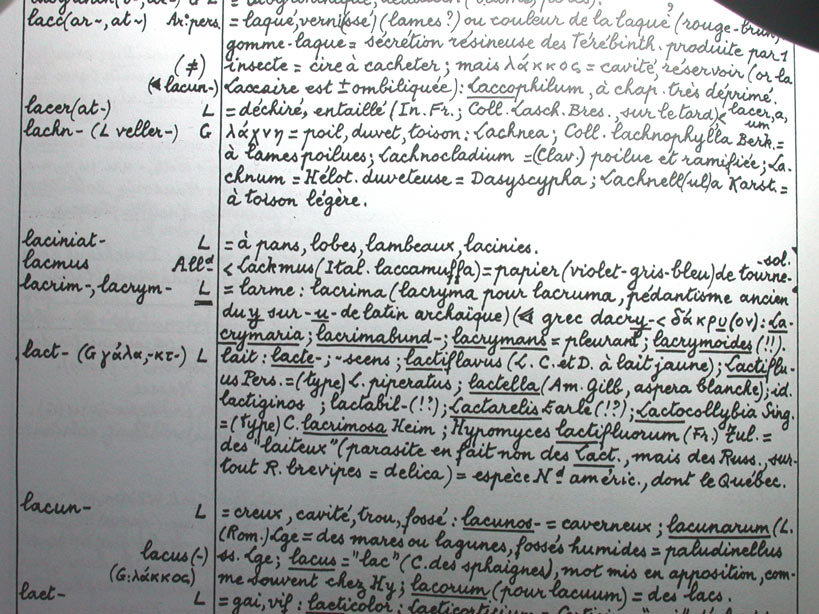 lacc(ar-, at-) Ar: pers. = laque, vernis(sé) (lames?) ou couleur de la laque (rouge-brun,
gomme-laque = sécrétion résineuse des Térébinth. produite par 1
(≠) insecte = cire à cacheter; mais λάκκος = cavité, réservoir (or la
(lacun-) Laccaire est ± ombiliquée): Laccophilum, à chap. très déprimé.
lacer(at-) L = déchiré, entaillé (In. Fr.; Coll. Lasch. Bres., sur le tard) < lacer, a, um
lachn- (L veller-) G λάχνη = poil, duvet, toison: Lachnea; Coll. lachnophylla Berk. =
à lames poilues; Lachnocladium = (Clav.) poilue et ramifiée; La-
chnum = Hélot. duveteuse = Dasyscypha; Lachnell(ul)a Karst. =
à toison légère.
laciniat- L = à pans, lobes, lambeaux, lacinies.
lacmus Alld < Lackmus (Ital. laccamuffa) = papier (violet-gris-bleu) de tourne-sol.
lacrim-, lacrym- L = larme: lacrima (lacryma pour lacruma, pédantisme ancien
du y sur -u- de latin archaïque) (grec dacry- < δάκρυ(ον): La-
crymaria; lacrimabund-; lacrymans = pleurant; lacrymoides (!!).
lact- (G γάλα, -κτ-) L lait: lacte-; -scens; lactiflavus (L. C. et D. à lait jaune); Lactiflu-
us Pers. = (type) L. piperatus; lactella (Am. Gilb, aspera blanche); id.
lactiginos; lactabil- (!?); Lactarelis Earle (!?); Lactocollybia Sing.
= (type) C. lacrimosa Heim; Hypomyces lactifluorum (Fr.) Tul. =
des "laiteux" (parasite en fait non des Lact., mais des Russ., sur-
tout R. brevipes = delica) = espèce Nd améric., dont le Québec.
lacun- L = creux, cavité, trou, fossé: lacunos- = caverneux; lacunarum (L.
(Rom.) Lge = des mares ou lagunes, fossés humides = paludinellus
lacus(-) ss. Lge; lacus = "lac" (C. des sphaignes), mot mis en apposition, com-
(G: λάκκος) me souvent chez Hy; lacorum (pour lacuum) = des lacs.
laet- L = gai, vif: laeticolor; laeticortisium